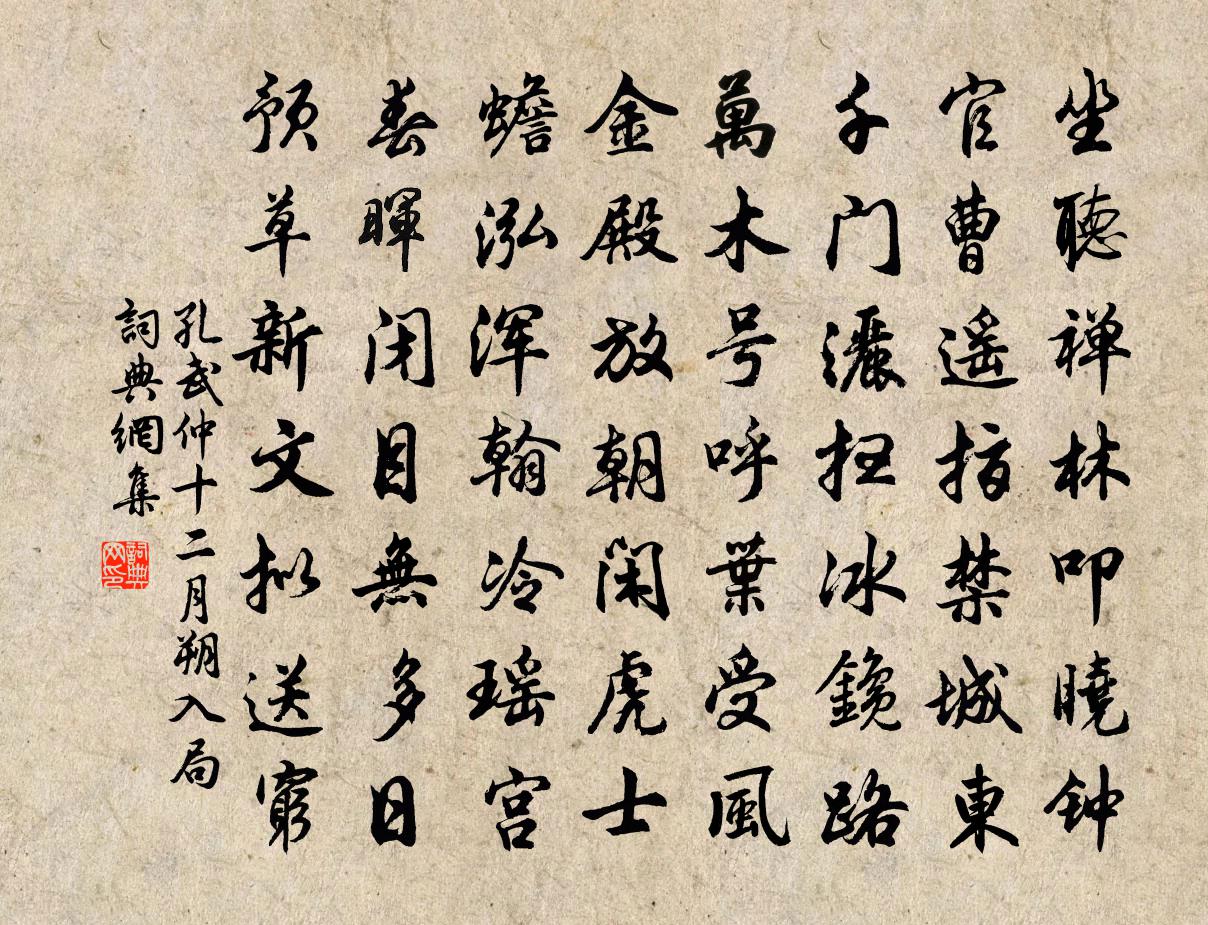 坐聽禅林叩曉钟
官曹遥指禁城東
千门灑扫冰鑱路
萬木号呼葉受風
金殿放朝闲虎士
蟾泓浑翰冷瑶宫
春暉闭目無多日
预草新文拟送窮
孔武仲十二月朔入局
詞典網集
詞典
网印